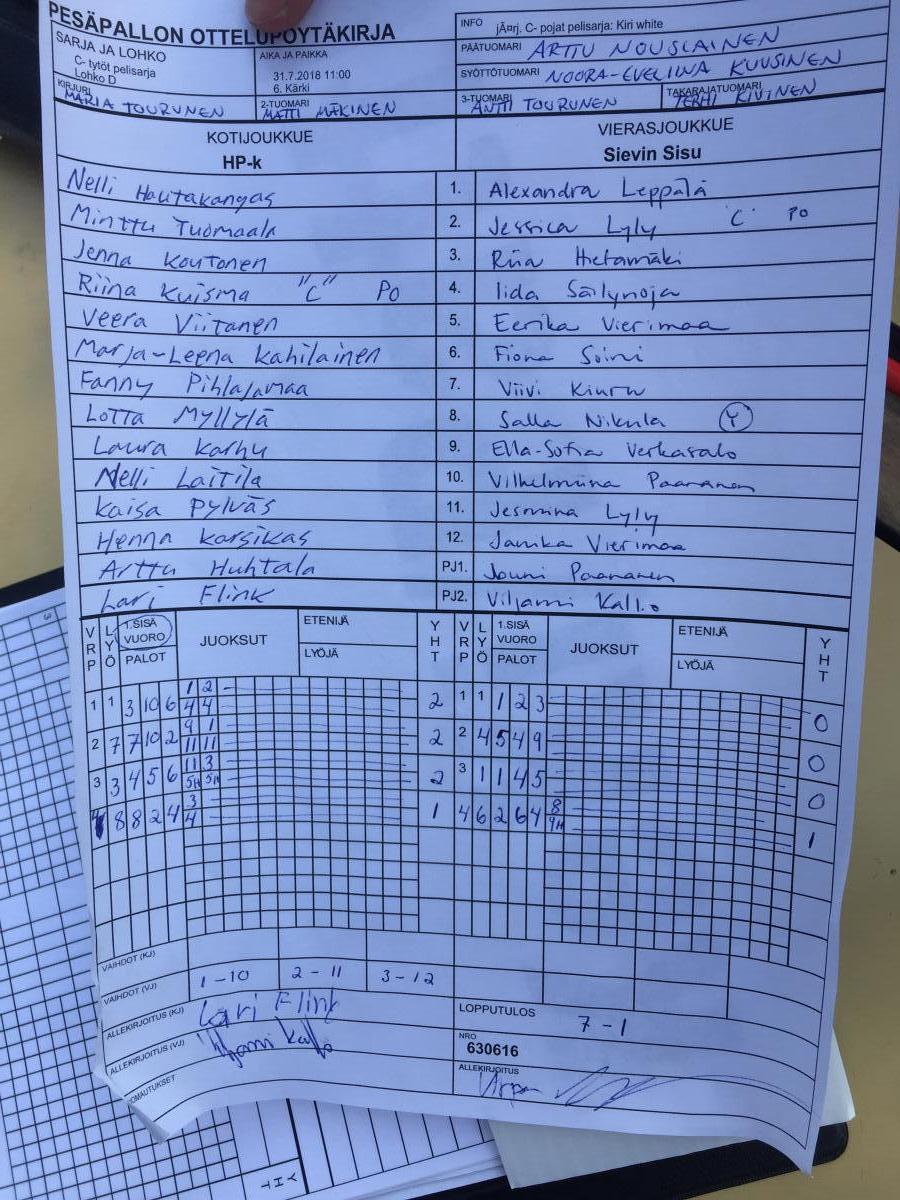 PESÄPALLON OTTELUPÖYTÄKIRJA
INFO jÃ¤rj. C- pojat pelisarja: Kiri white
SARJA JA LOHKO C- tytöt pelisarja Lohko D
AIKA JA PAIKKA 31.7.2018 11:00 6. Kärki
PÄÄTUOMARI ARTTU NOUSIAINEN
SYÖTTÖTUOMARI NOORA-EVELIINA KUUSINEN
KIRJURI MARIA TOURUNEN 2-TUOMARI MATTI MÄKINEN 3-TUOMARI ANTTI TOURUNEN TAKARAJATUOMARI TERHI KIVINEN
KOTIJOUKKUE VIERASJOUKKUE
HP-k Sievin Sisu
Nelli Hautakangas 1. Alexandra Leppälä
Minttu Tuomaala 2. Jessica Lyly "C" PO
Jenna Koutonen 3. Riia Hietamäki
Riina Kuisma "C" PO 4. Iida Säilynoja
Veera Viitanen 5. Eerika Vierimaa
Marja-Leena Kahilainen 6. Fiona Soini
Fanny Pihlajamaa 7. Viivi Kiuru
Lotta Myllylä 8. Salla Nikula Y
Laura Karhu 9. Ella-Sofia Verkasalo
Nelli Laitila 10. Vilhelmiina Paananen
Kaisa Pylväs 11. Jesmina Lyly
Henna Karsikas 12. Janika Vierimaa
Arttu Huhtala PJ1. Jouni Paananen
Lari Flink PJ2. Viljami Kallio
VRP LYÖ 1.SISÄ VUORO PALOT JUOKSUT ETENIJÄ LYÖJÄ YHT VRP LYÖ 1.SISÄ VUORO PALOT JUOKSUT ETENIJÄ LYÖJÄ YHT
1 2
1 1 3 10 6 4 4 2 1 1 1 2 3 0
9 1
2 7 7 10 2 11 11 2 2 4 5 4 9 0
11 3
3 3 4 5 6 5H 5H 2 3 1 1 4 5 0
3 8
4 8 8 2 4 4 1 4 6 2 6 4 9H 1
VAIHDOT (KJ)
VAIHDOT (VJ) 1-10 2-11 3-12
ALLEKIRJOITUS (KJ) Lari Flink
LOPPUTULOS 7-1
ALLEKIRJOITUS (VJ) Viljami Kallio
NRO 630616
HUOMAUTUKSET
ALLEKIRJOITUS
YHT